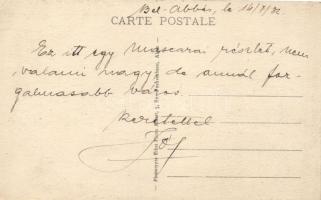 Bel-Abbès, le 14/7/32
CARTE POSTALE
Ez itt egy mascarai részlet, nem
valami nagy de annál for-
galmasabb város
szeretettel